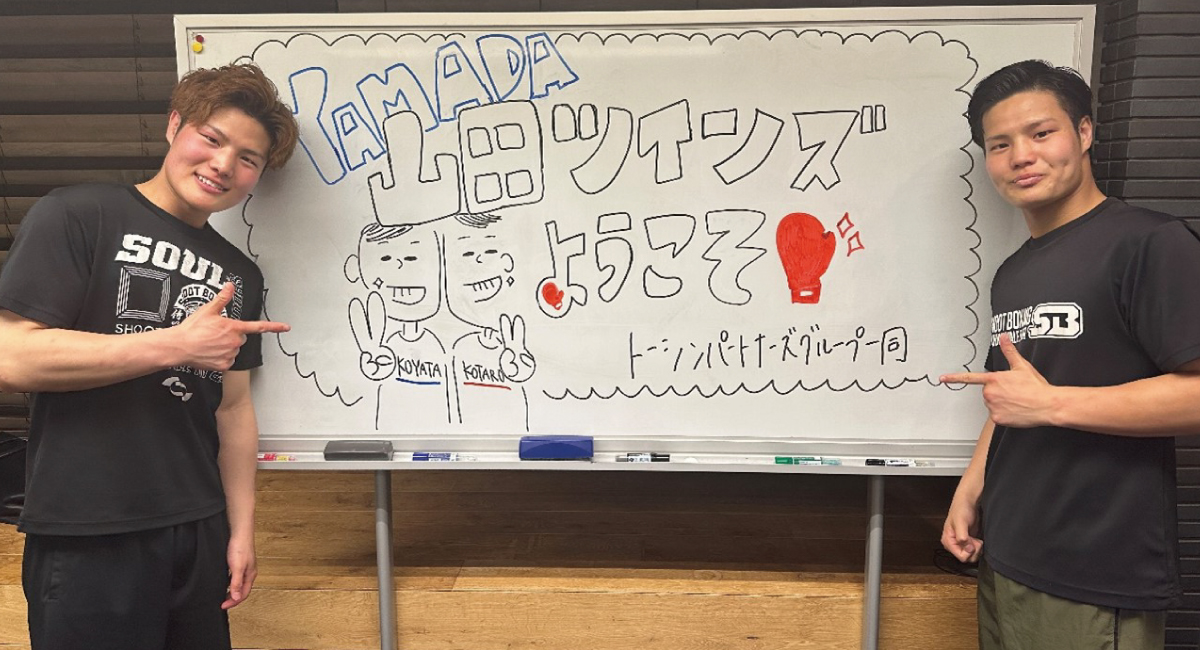 YAMADA
山田ツインズ
ようこそ
KOYATA
KOTARO
トーシンパートナーズグループ一同
SOUL
SHOOT BOXING
SB